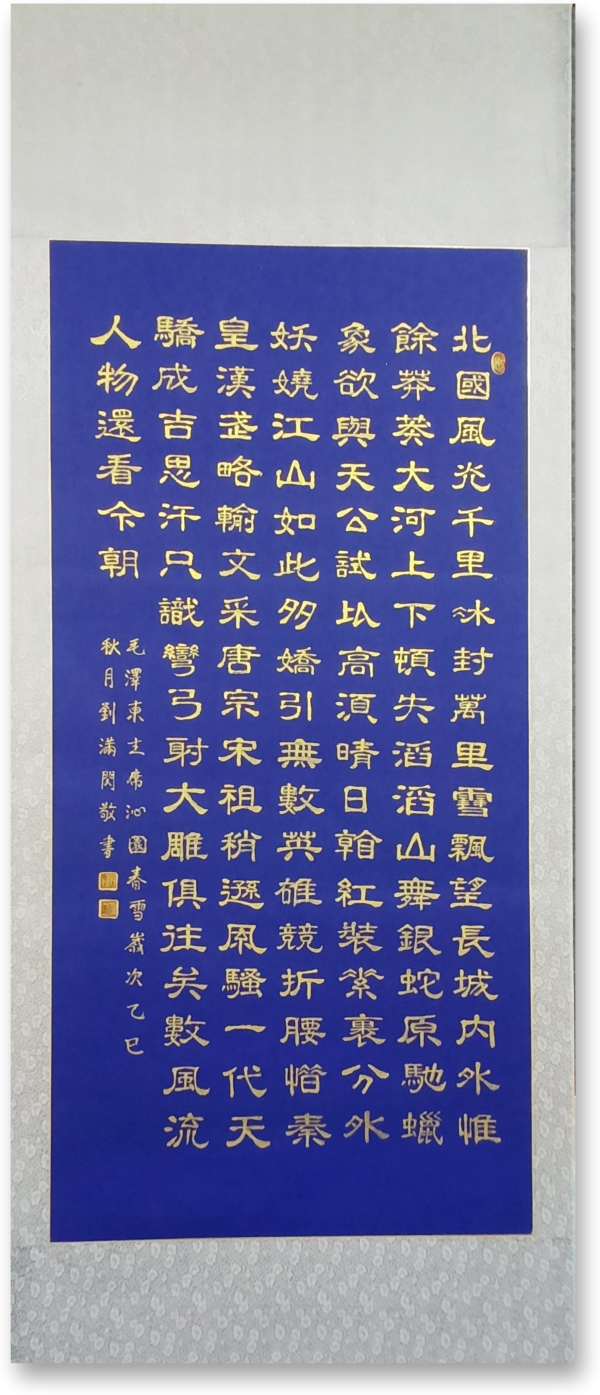 北國風光千里冰封萬里雪飄望長城內外惟
餘莽莽大河上下頓失滔滔山舞銀蛇原馳蠟
象欲與天公試比高須晴日看紅裝素裹分外
妖嬈江山如此多嬌引無數英雄競折腰惜秦
皇漢武略輸文采唐宗宋祖稍遜風騷一代天
驕成吉思汗只識彎弓射大雕俱往矣數風流
人物還看今朝
毛澤東主席沁園春雪歲次乙巳
秋月劉滿閃敬書